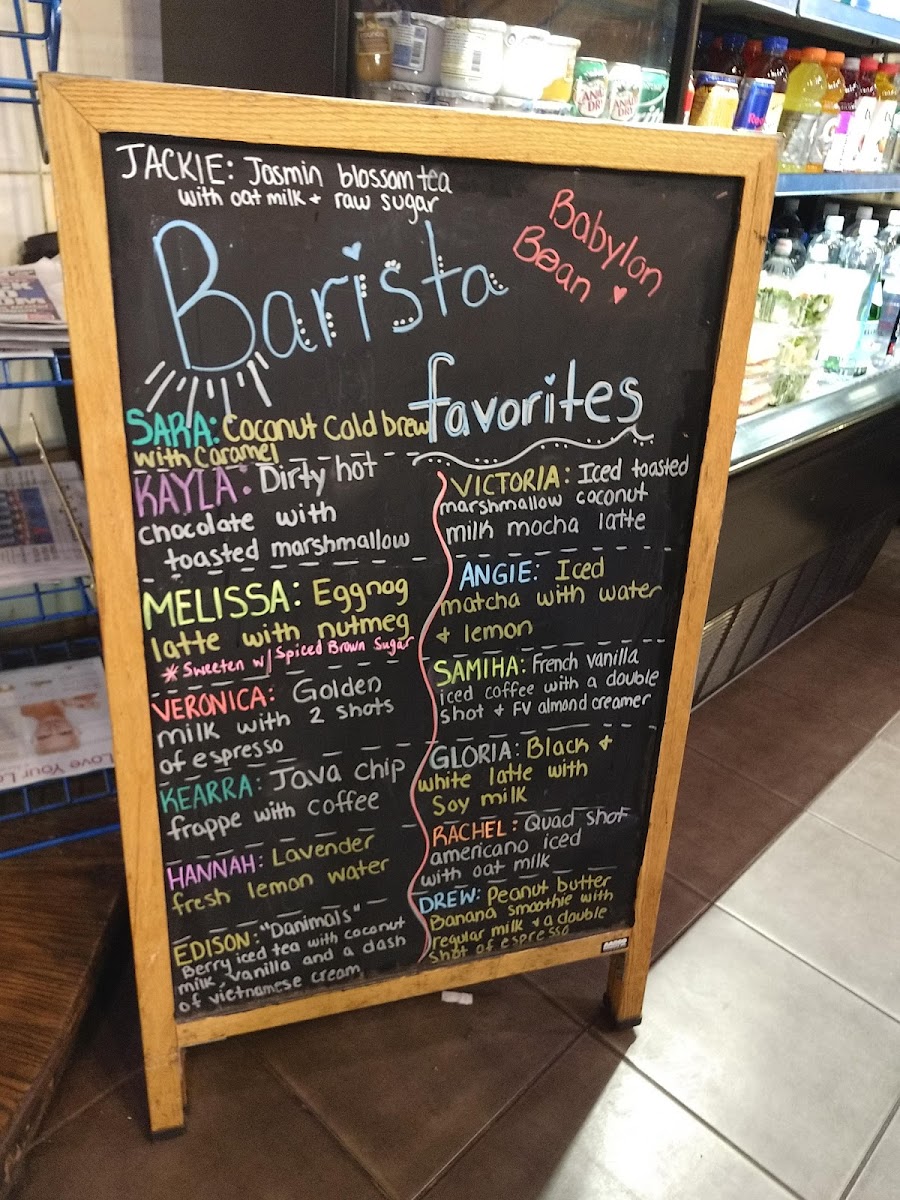 JACKIE: Jasmin blossom tea
with oat milk + raw sugar
Babylon
Bean
Barista
favorites
SARA: Coconut Cold brew
with Caramel
KAYLA: Dirty hot
chocolate with
toasted marshmallow
MELISSA: Eggnog
latte with nutmeg
* Sweeten w/ Spiced Brown Sugar
VERONICA: Golden
milk with 2 shots
of espresso
KEARRA: Java chip
frappe with coffee
HANNAH: Lavender
fresh lemon water
EDISON: "Danimals"
Berry iced tea with coconut
milk, vanilla and a dash
of vietnamese cream
VICTORIA: Iced toasted
marshmallow coconut
milk mocha latte
ANGIE: Iced
matcha with water
& lemon
SAMIHA: French vanilla
iced coffee with a double
shot & FV almond creamer
GLORIA: Black &
white latte with
Soy milk
RACHEL: Quad shot
americano iced
with oat milk
DREW: Peanut butter
Banana smoothie with
regular milk & a double
shot of espresso
CANADA
DRY
Love Your